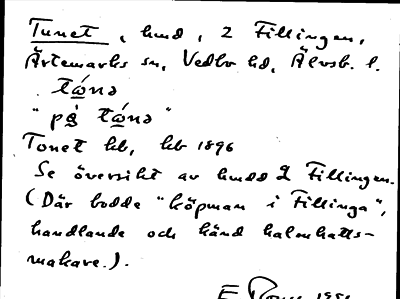 Tunet, hmd, 2 Fillingen,
Ärtemarks sn, Vedbo hd, Älvsb. l.
tǫ́nə
"på̀ tǫ́nə"
Tonet hb, kb 1896
Se översikt av hmdd 2 Fillingen.
(Där bodde "köpman i Fillinga",
handlande och känd halmhatts-
makare.).